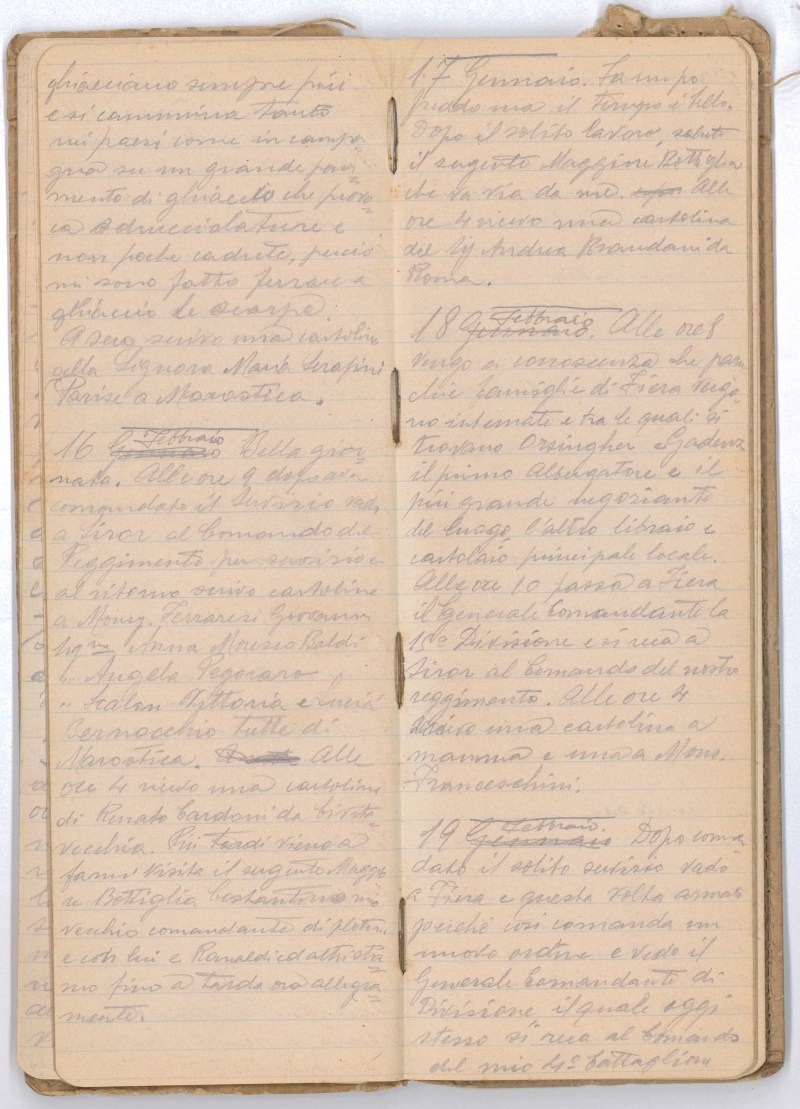 ghiacciano sempre più
e si cammina tanto
nei paesi come in campa=
gna su un grande pavi=
mento di ghiaccio che provo=
ca sdrucciolature e
non poche cadute, perciò
mi sono fatto ferrare a
ghiaccio le scarpe.
A sera scrivo una cartolina
alla Signora Maria Serafini
Parise a Marostica.
16 Gennaio Febbraio Bella gior=
nata. Alle ore 9 dopo aver
comandato il servizio vado
a Siror al Comando di
Reggimento per servizio e
al ritorno scrivo cartoline
a Mons. Ferraresi Giovanni
Sig.na Anna Moresco Baldi
" Angela Pegoraro
" Scalon Vittoria e Lucia
Bernocchio tutte di
Marostica. Alle
ore 4 ricevo una cartolina
di Renato Cardoni da Civita=
vecchia. Più tardi viene a
farmi visita il sergente Maggio
re Bottiglia Costantino mio
vecchio comandante di plotone
e con lui e Ranaldi ed altri stia=
mo fino a tarda ora allegra=
mente.
17 Gennaio. Fa un po
freddo ma il tempo è bello.
Dopo il solito lavoro, saluto
il sergente Maggiore Bottiglia
che va via da noi. Alle
ore 4 ricevo una cartolina
del Sig Andrea Brandani da
Roma.
18 Gennaio Febbraio. Alle ore 8
vengo a conoscenza che parec
chie famiglie di Fiera vengo=
no internate e tra le quali si
trovano Orsingher e Gadenz
il primo Albergatore e il
più grande negoziante
del luogo, l'altro libraio e
cartolaio principale locale.
Alle ore 10 passa a Fiera
il Generale Comandante la
15a Divisione e si reca a
Siror al Comando del nostro
reggimento. Alle ore 4
scrivo una cartolina a
mamma e una a Mons.
Franceschini.
19 Gennaio Febbraio. Dopo coman
dato il solito servizio vado
a Fiera e questa volta armato
perché così comanda un
nuovo ordine e vedo il
Generale Comandante di
Divisione il quale oggi
stesso si reca al Comando
del mio 4º Battaglione